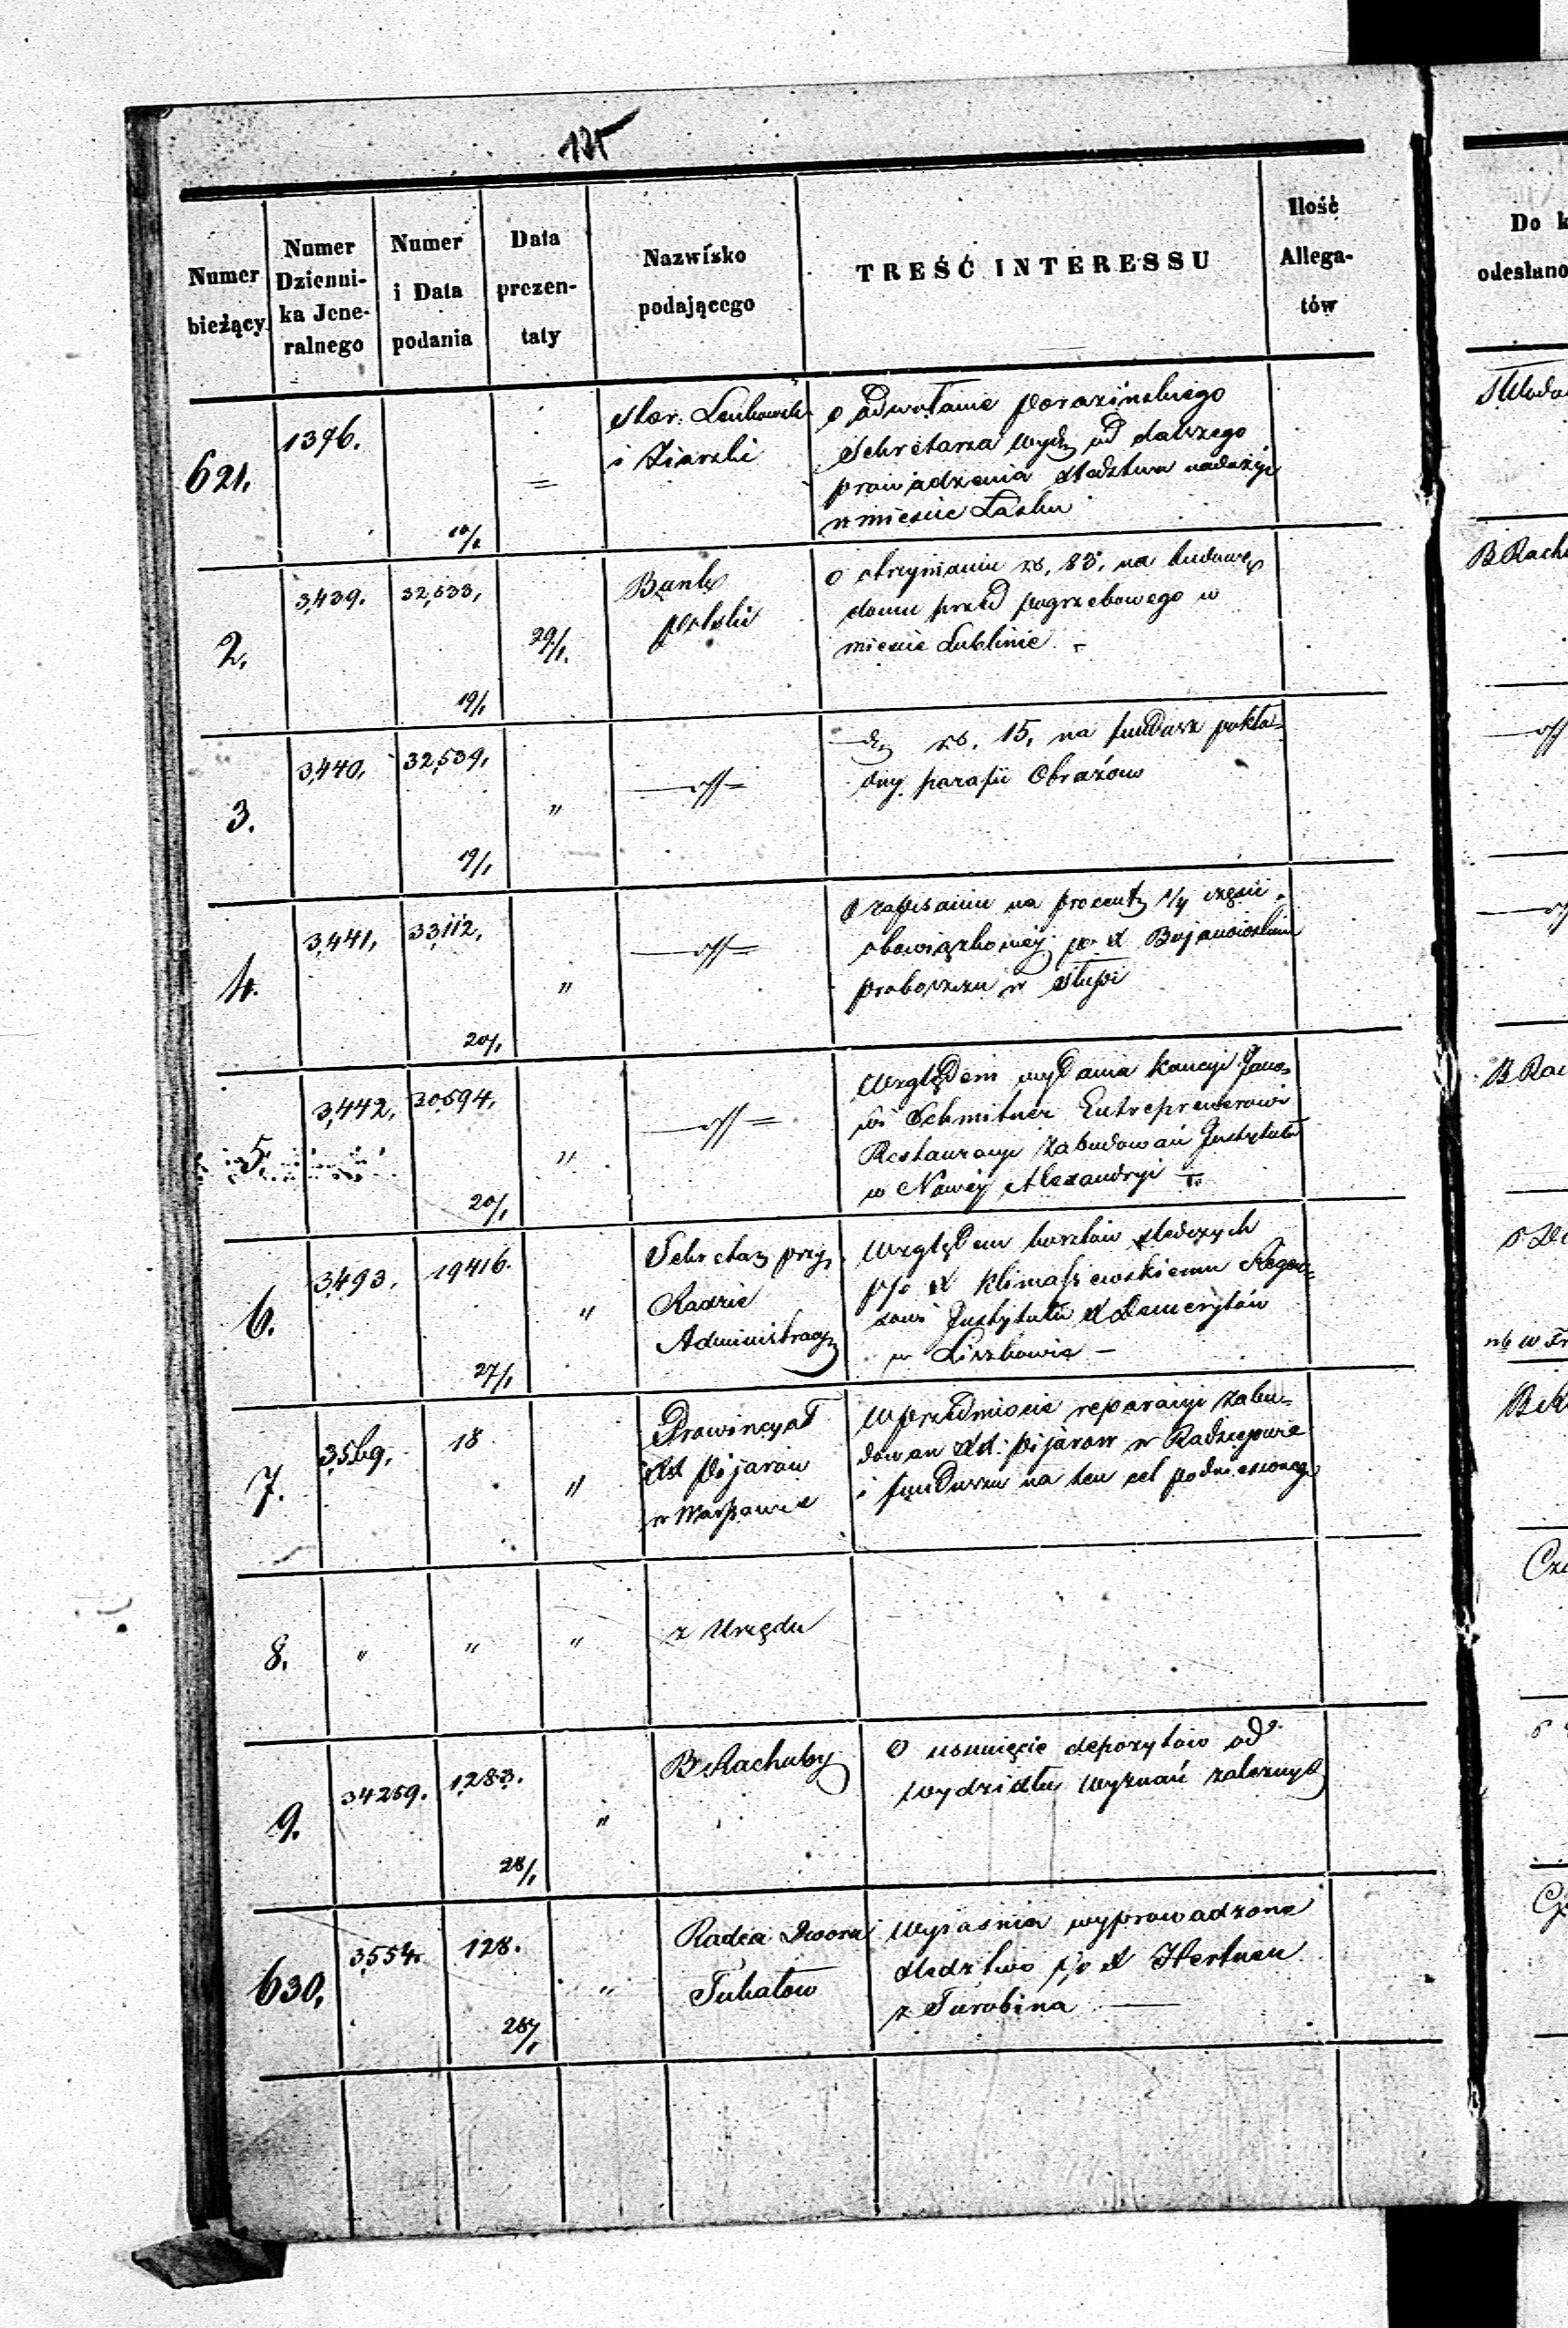 125
Numer bieżący
Numer Dzienni-ka Jene-ralnego
Numer i Data podania
Data prezen-taty
Nazwisko podającego
TREŚĆ INTERESSU
Ilość Allega-tów
Do k
odesłano
621.
1396.
10/1
Star.
i Ziarski
o odwołanie Porazińskiego
Sekretarza Wydz od dalszego
prowadzenia śledztwa nadużyć
w mieście Łasku
2.
3,439.
32,533,
19/1
29/1.
Bank
Polski
o otrzymaniu rs, 83, na budowę
domu przed pogrzebowego w
mieście Lublinie
B Rach
3.
3,440,
32,539,
19/1
"
rs. 15, na fundusz pokła-
dny parafii Obrazów
4.
3,441,
33,112,
20/1
"
O zapisaniu na procent 1/4 części
obowiązkowej po X Bojanowskim
proboszczu w Słupi
5.
3,442,
30594,
20/1
"
Względem wydania Kaucyi
Schmitner Entreprenerowi
Restauracyi zabudowań Instytutu
w Nowéj Alexandryi
B Rac
6.
3,493.
19416.
27/1
"
Sekretarz przy
Radzie
Administracyj
Względem kosztów śledczych
p/o X Klimaszewskiemu Regen-
sowi Instytutu X Demerytów
w Liszkowie —
7.
3,569.
18
"
Prowincyał
XX Pijarów
w Warszawie
W przedmiocie reparacyi zabu-
dowan XX. Pijarow w Radziejowie
i funduszu na ten cel podniesionego
8.
"
"
"
z Urzędu
9.
34259.
1,283.
28/1
"
B Rachuby
O usunięcie depozytów od
Wydziału Wyznań zależnych
630,
3,554.
128.
28/1
"
Radca Dworu
Tuhałow
Wyjaśnia wyprowadzone
śledztwo p/o X Hertnen
z Turobina —